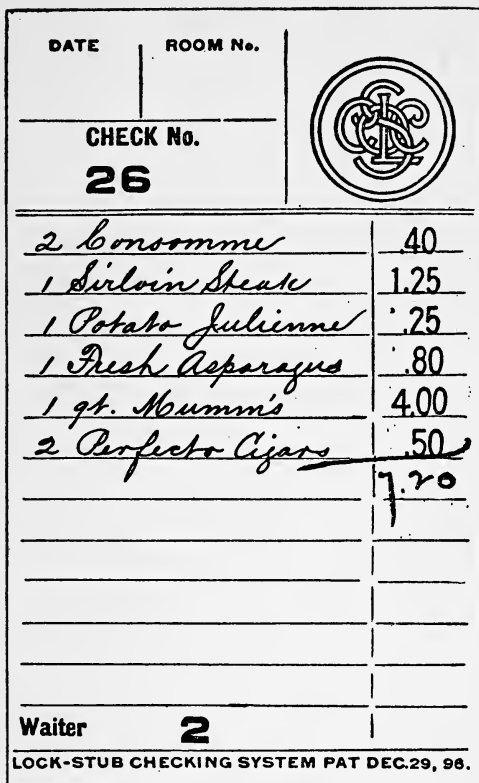 DATE ROOM No.
CHECK No.
26
2 Consomme .40
1 Sirloin Steak 1.25
1 Potato Julienne .25
1 Fresh Asparagus .80
1 qt. Mumm's 4.00
2 Perfecto Cigars .50
7.20
Waiter 2
LOCK-STUB CHECKING SYSTEM PAT DEC.29, 96.